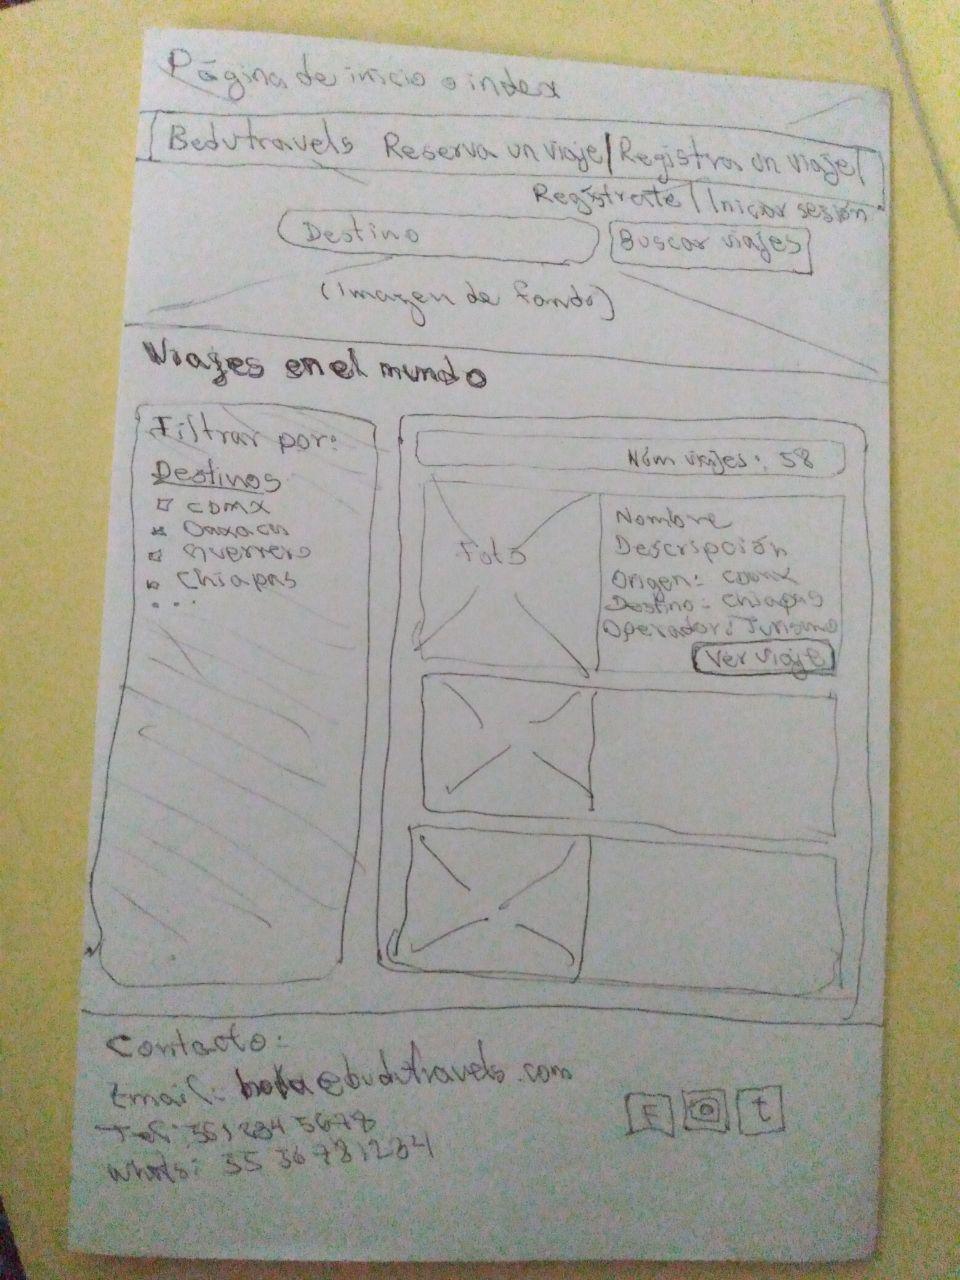 Página de inicio o index
Bedutravels Reserva un viaje/Registra un viaje/
Regístrate/Iniciar sesión
Destino
Buscar viajes
(Imagen de fondo)
Viajes en el mundo
Filtrar por:
Destinos
CDMX
Oaxaca
Guerrero
Chiapas
...
Núm viajes: 58
Foto
Nombre
Descripción
Origen: CDMX
Destino: Chiapas
Operador: Turismo
Ver viaje
Contacto:
Email: hola@budutravels.com
Tel: 5678
Whats: 55 36781234
F
t